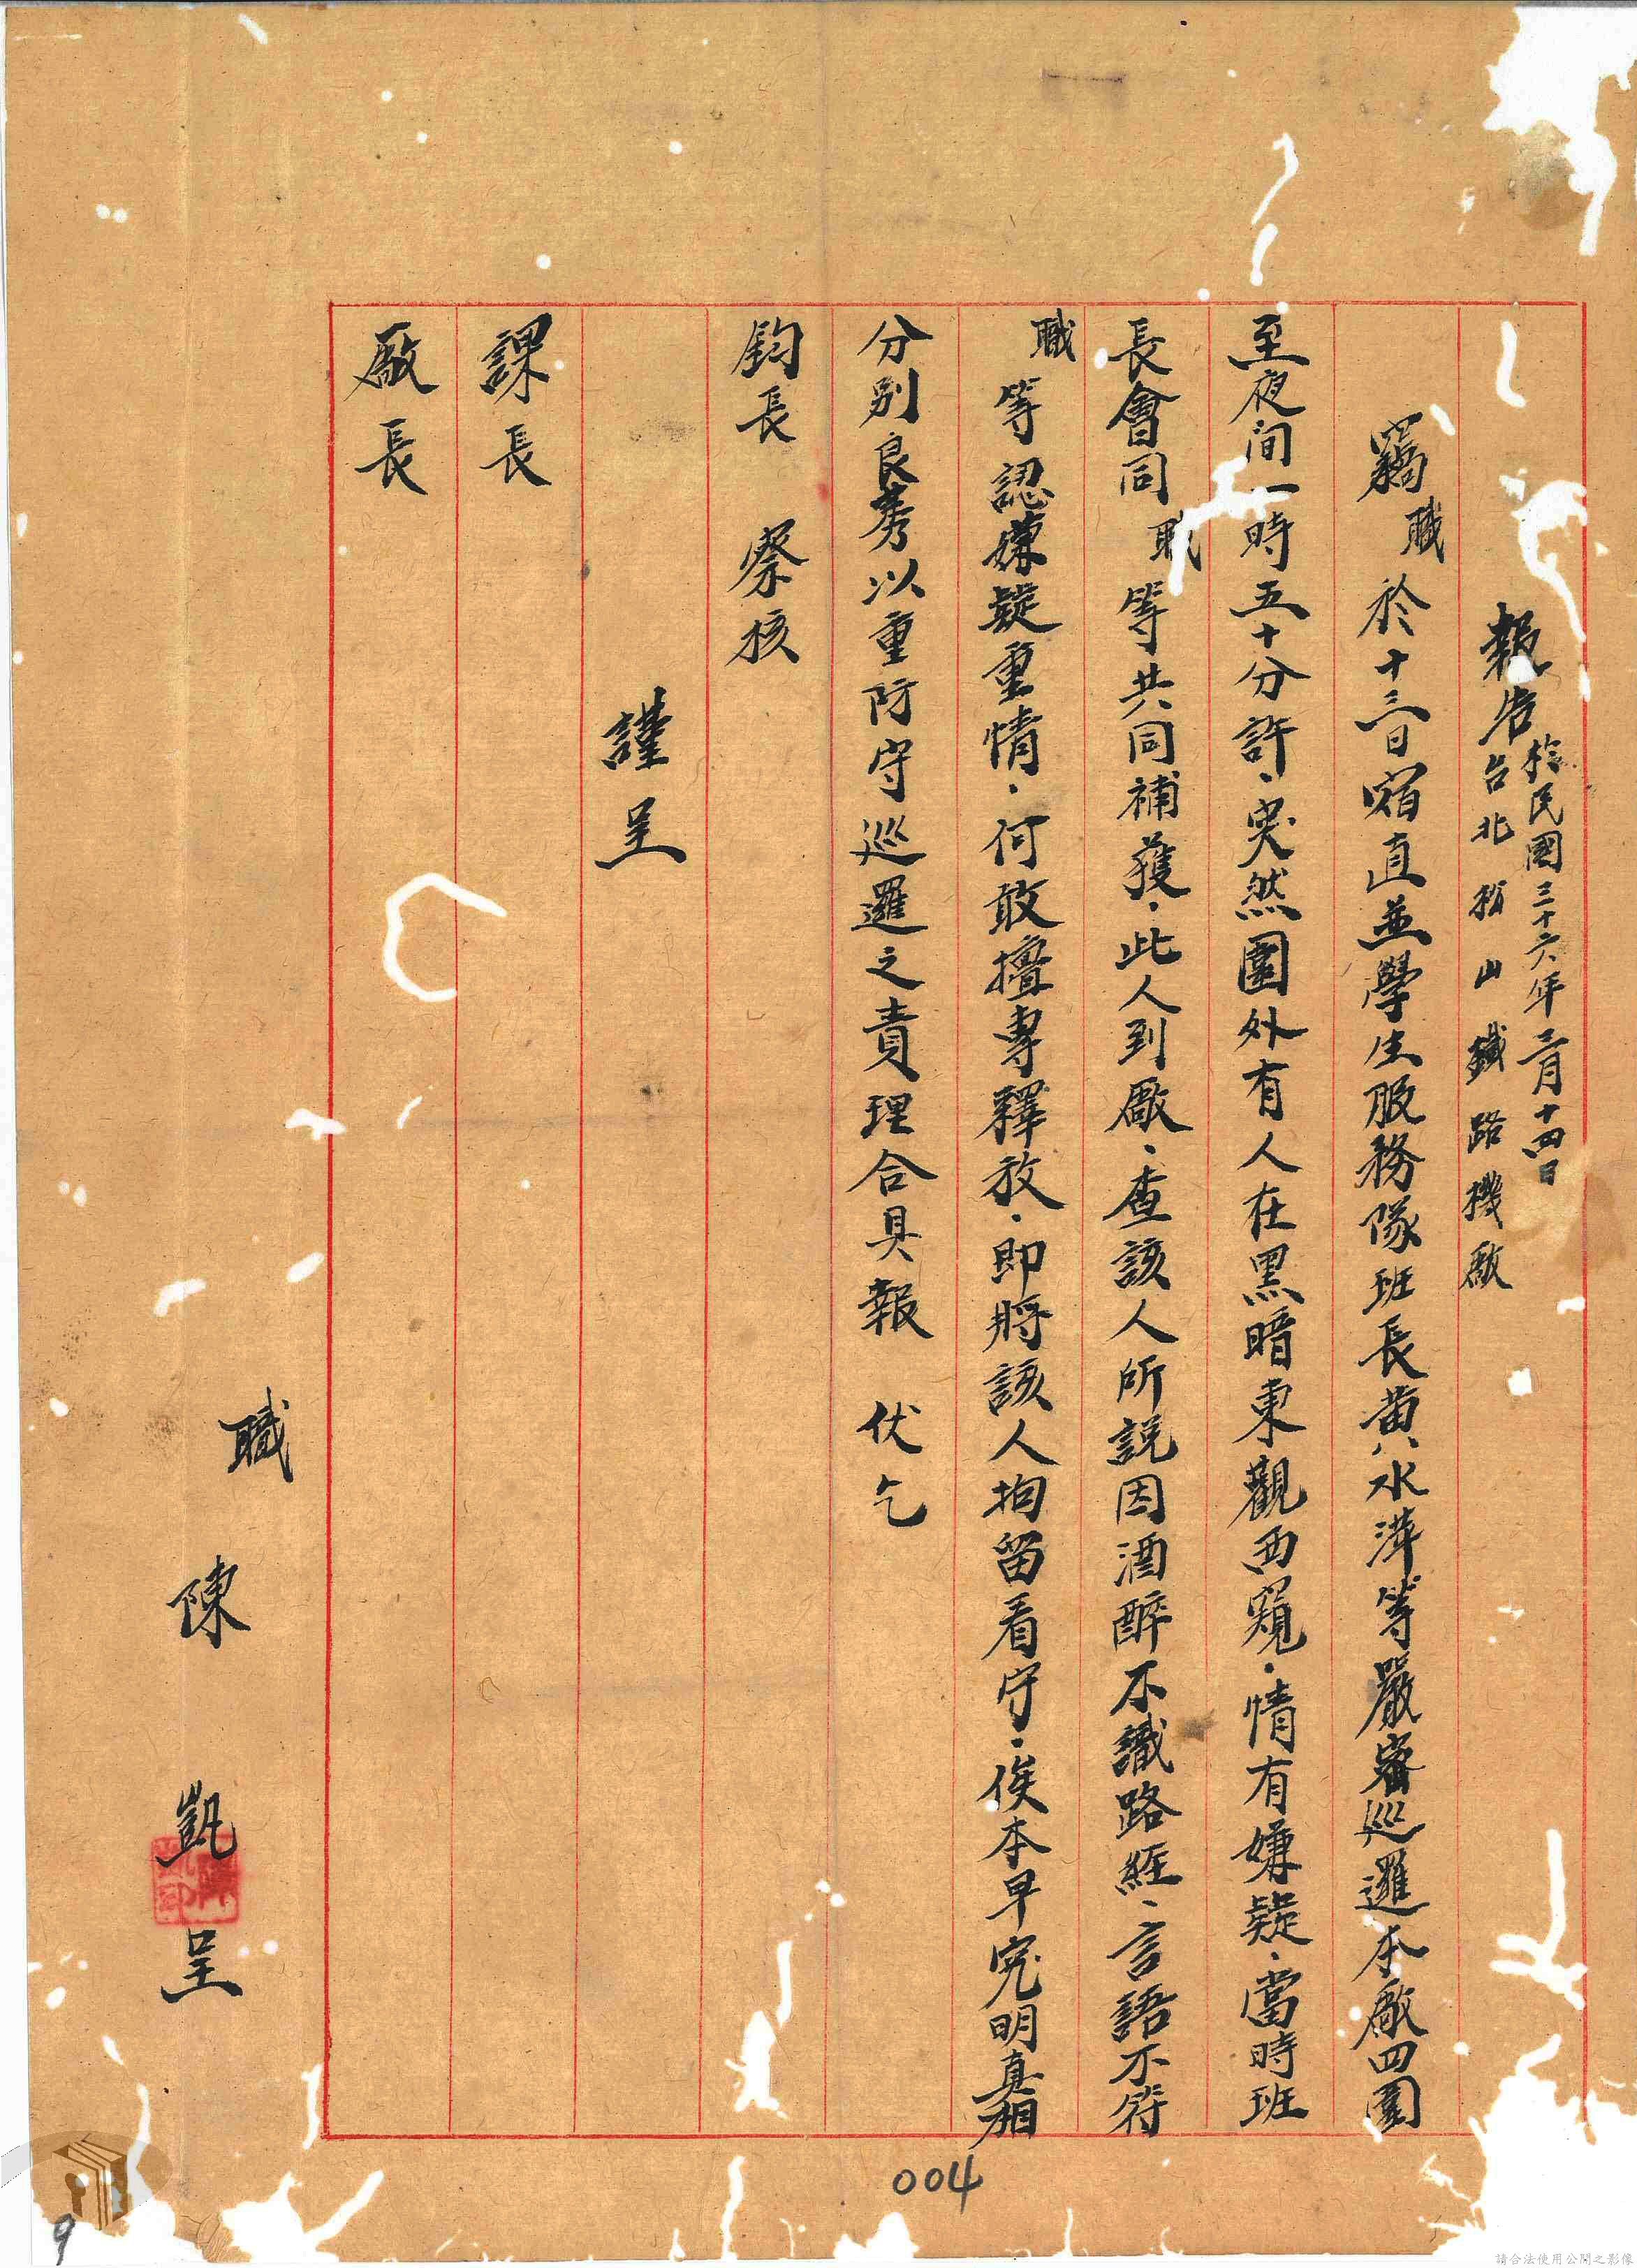 報告 於民國三十六年三月十四日
台北松山鐵路機廠
竊職於十三日宿直並學生服務隊班長黄水萍等嚴密巡邏本廠四圍
至夜间一時五十分許，突然圍外有人在黑暗東觀西窺，情有嫌疑，當時班
長會同職等共同補獲，此人到廠，查該人所説因酒醉不識路經，言語不符
職等認嫌疑重情，何敢擅專釋放，即將該人拘留看守，俟本早究明真相
分别良莠以重防守巡邏之責理合具報 伏乞
鈞長 察核
謹呈
課長
廠長
職 陳 凱 呈
004
9
請合法使用公開之影像